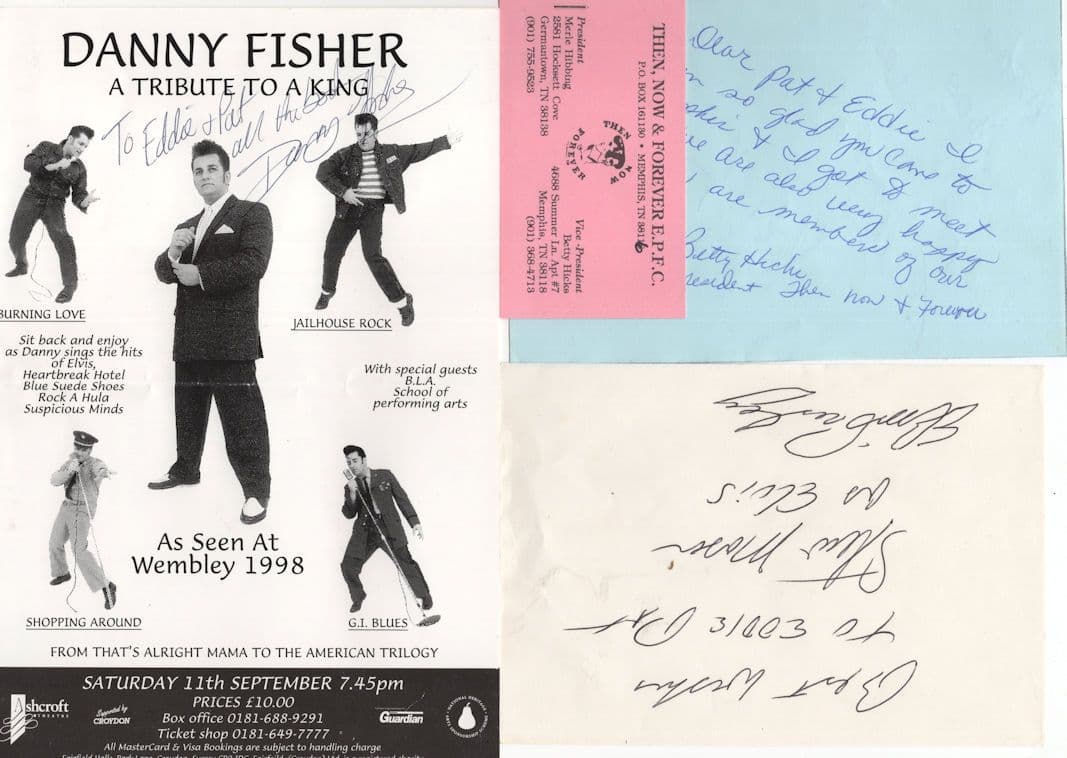 DANNY FISHER
A TRIBUTE TO A KING
To Eddie & Pat
all the best
Danny Fisher
BURNING LOVE
JAILHOUSE ROCK
Sit back and enjoy
as Danny sings the hits
of Elvis,
Heartbreak Hotel
Blue Suede Shoes
Rock A Hula
Suspicious Minds
With special guests
B.L.A.
School of
performing arts
As Seen At
Wembley 1998
SHOPPING AROUND
G.I. BLUES
FROM THAT'S ALRIGHT MAMA TO THE AMERICAN TRILOGY
SATURDAY 11th SEPTEMBER 7.45pm
PRICES £10.00
Box office 0181-688-9291
Ticket shop 0181-649-7777
All MasterCard & Visa Bookings are subject to handling charge
Ashcroft
THEATRE
Supported by
CROYDON
Guardian
THEN, NOW & FOREVER E.P.F.C.
P.O. BOX 161130 • MEMPHIS, TN 3816
THEN NOW FOREVER
President
Merle Hibbing
2581 Hocksett Cove
Germantown, TN 38138
(901) 755-9523
Vice-President
Betty Hicks
4688 Summer Ln. Apt #7
Memphis, TN 38118
(901) 368-4713
Dear Pat & Eddie I
so glad you came to
& I got to meet
are also very happy
are members of our
Betty Hicks
resident Then now & Forever
Best Wishes
TO EDDIE & Pat
as Elvis
Elvis Presley